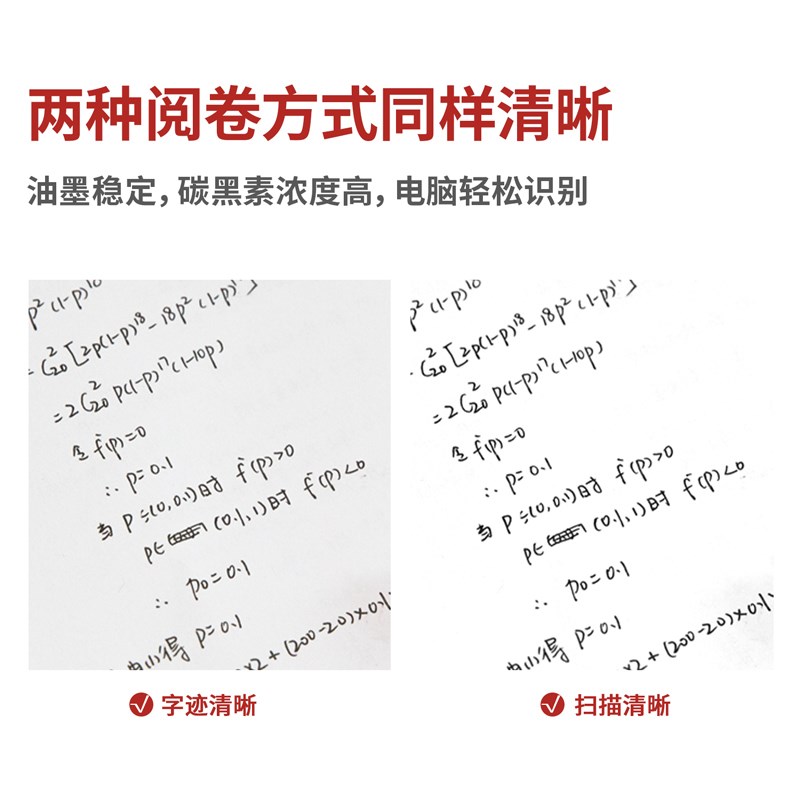 两种阅卷方式同样清晰
油墨稳定，碳黑素浓度高，电脑轻松识别
p²(1-p)¹⁸
= C₂₀²[2p(1-p)¹⁸-18p²(1-p)¹⁷]
=2C₂₀² p(1-p)¹⁷(1-10p)
令 f'(p)=0
∴ p=0.1
当 p=(0,0.1)时 f'(p)>0
p∈ (0.1,1)时 f'(p)<0
∴ p₀=0.1
得 p=0.1
×2+(200-20)×0.1
p²(1-p)¹⁸
C₂₀²[2p(1-p)¹⁸-18p²(1-p)¹⁷]
=2C₂₀² p(1-p)¹⁷(1-10p)
令 f'(p)=0
∴ p=0.1
当 p=(0,0.1)时 f'(p)>0
p∈ (0.1,1)时 f'(p)<0
∴ p₀=0.1
得 p=0.1
×2+(200-20)×0.1
字迹清晰
扫描清晰